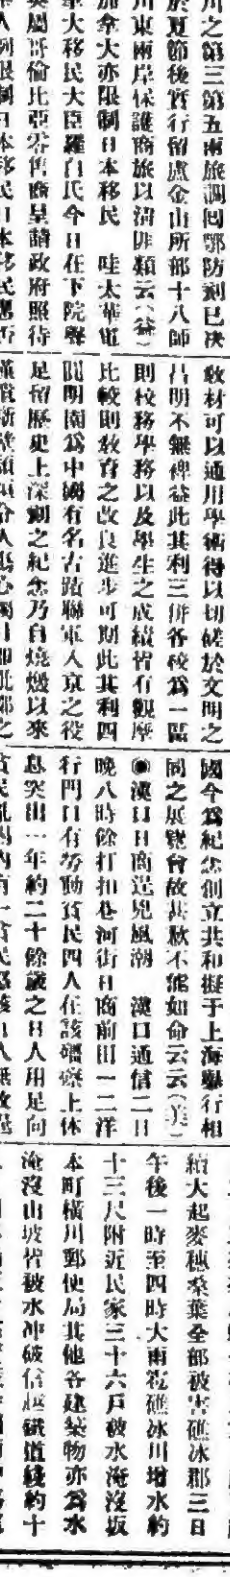 川之第三第五兩旅調回鄂防剿已决
於夏節後實行留盧金山所部十八師
川東兩岸保護商旅以清匪類云(益)
加拿大亦限制日本移民　哇太華電
拿大移民大臣羅白氏今日在下院聲
英屬哥倫比亞零售商呈請政府照待
敎材可以通用學術得以切磋於文明之
昌明不無裨益此其利三併各校爲一區
則校務學務以及學生之成績皆有觀摩
比較則敎育之改良進步可期此其利四
圓明園爲中國有名古蹟聯軍入京之役
足留歷史上深刻之紀念乃自燒燬以來
國今爲紀念創立共和擬于上海舉行相
同之展覽會故其欵不能如命云云(美)
◉漢口日商逞兇風潮　漢口通信二日
晚八時餘打扣巷河街日商前田一二洋
行門口有勞動貧民四人在該礓磜上休
息突出一年約二十餘歲之日人用足向
續大起麥穗桑葉全部被害礁氷郡三日
午後一時至四時大雨雹礁氷川增水約
十三尺附近民家三十六戶被水淹沒坂
本町橫川郵便局其他各建築物亦爲水
淹沒山坡皆被水冲破信越鐵道綫約十